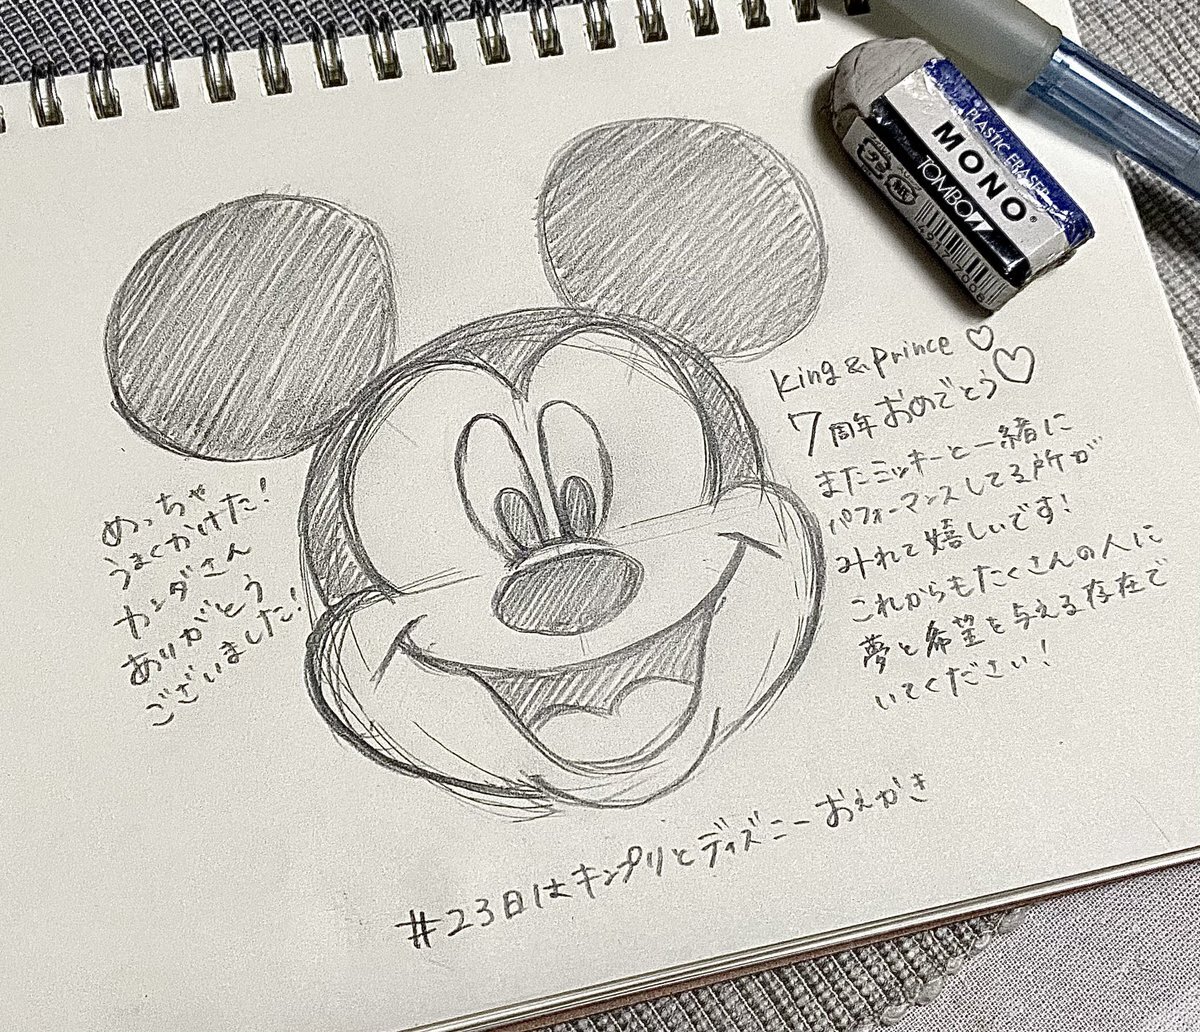 PLASTIC ERASER
MONO®
TOMBOW
King & Prince ♡
7周年おめでとう♡
またミッキーと一緒に
パフォーマンスしてる所が
みれて嬉しいです!
これからもたくさんの人に
夢と希望を与える存在で
いてください!
めっちゃ
うまくかけた!
カンダさん
ありがとう
ございました!
#23日はキンプリとディズニーおえかき